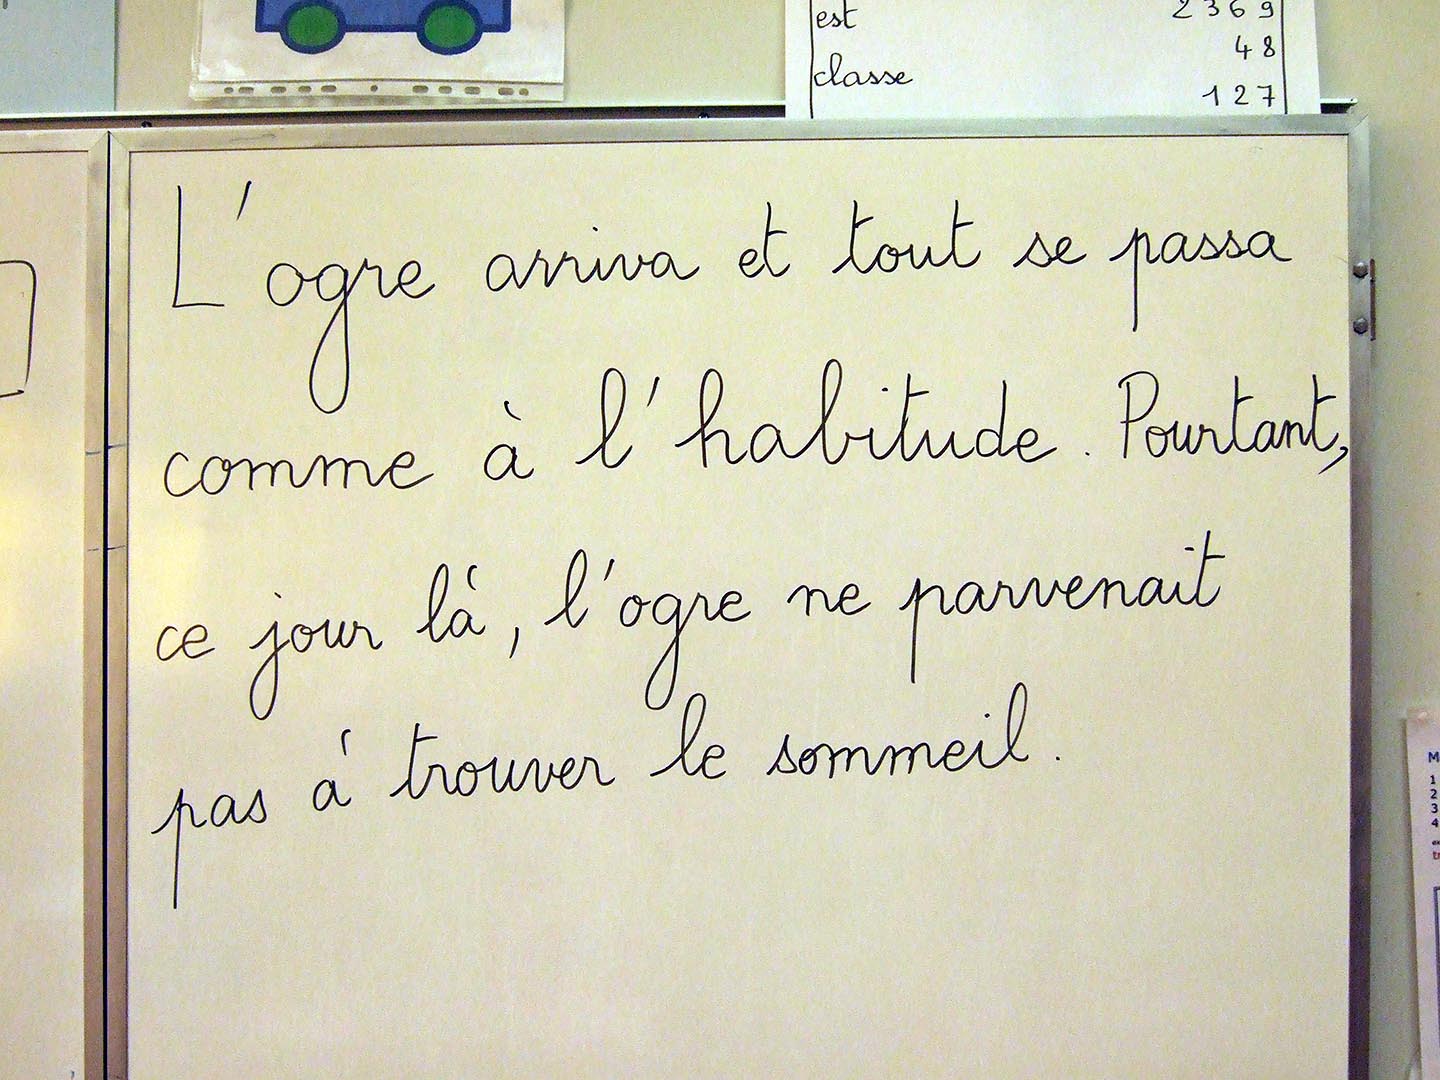 est 2369
48
classe
127
L'ogre arriva et tout se passa
comme à l'habitude. Pourtant,
ce jour là, l'ogre ne parvenait
pas à trouver le sommeil.
M
1
2
3
4